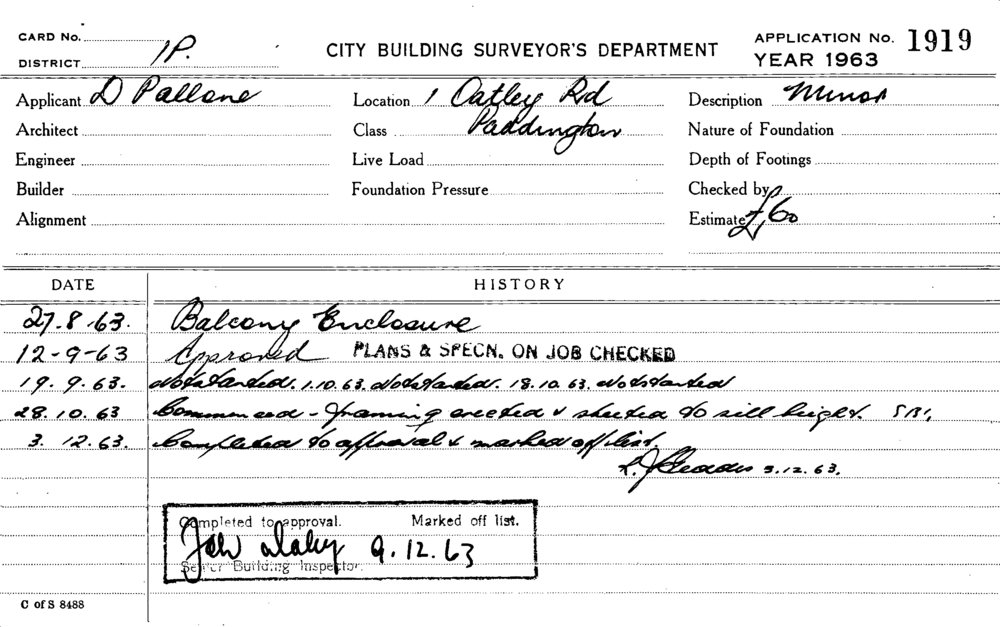 CARD No.
DISTRICT 1P.
CITY BUILDING SURVEYOR'S DEPARTMENT
APPLICATION No. 1919
YEAR 1963
Applicant D Pallone Location 1 Oatley Rd Description Minor
Architect Class Paddington Nature of Foundation
Engineer Live Load Depth of Footings
Builder Foundation Pressure Checked by
Alignment Estimate £60
DATE HISTORY
27.8.63. Balcony Enclosure
12-9-63 Approved PLANS & SPECN. ON JOB CHECKED
19.9.63. Not started. 1.10.63. Not started. 18.10.63. Not started
28.10.63 Commenced - framing erected & sheeted to sill height.
3.12.63. Completed to approval & marked off list.
3.12.63.
Completed to approval. Marked off list.
9.12.63
Senior Building Inspector.
C of S 8488